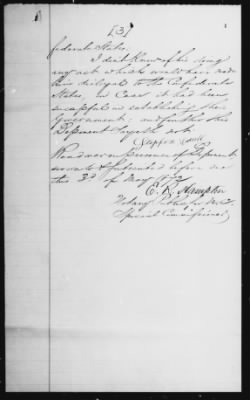 [3]
federate States.
I dont know of his doing
any act which would have made
him disloyal to the Confederate
States, in case it had been
successful in establishing their
Government; and further this
Deponent Sayeth not.
Read over in presence of Deponent
sworn to & Subscribed before me
this 3d of May
E. R. Hampton
Notary Public for
Special Commissioner